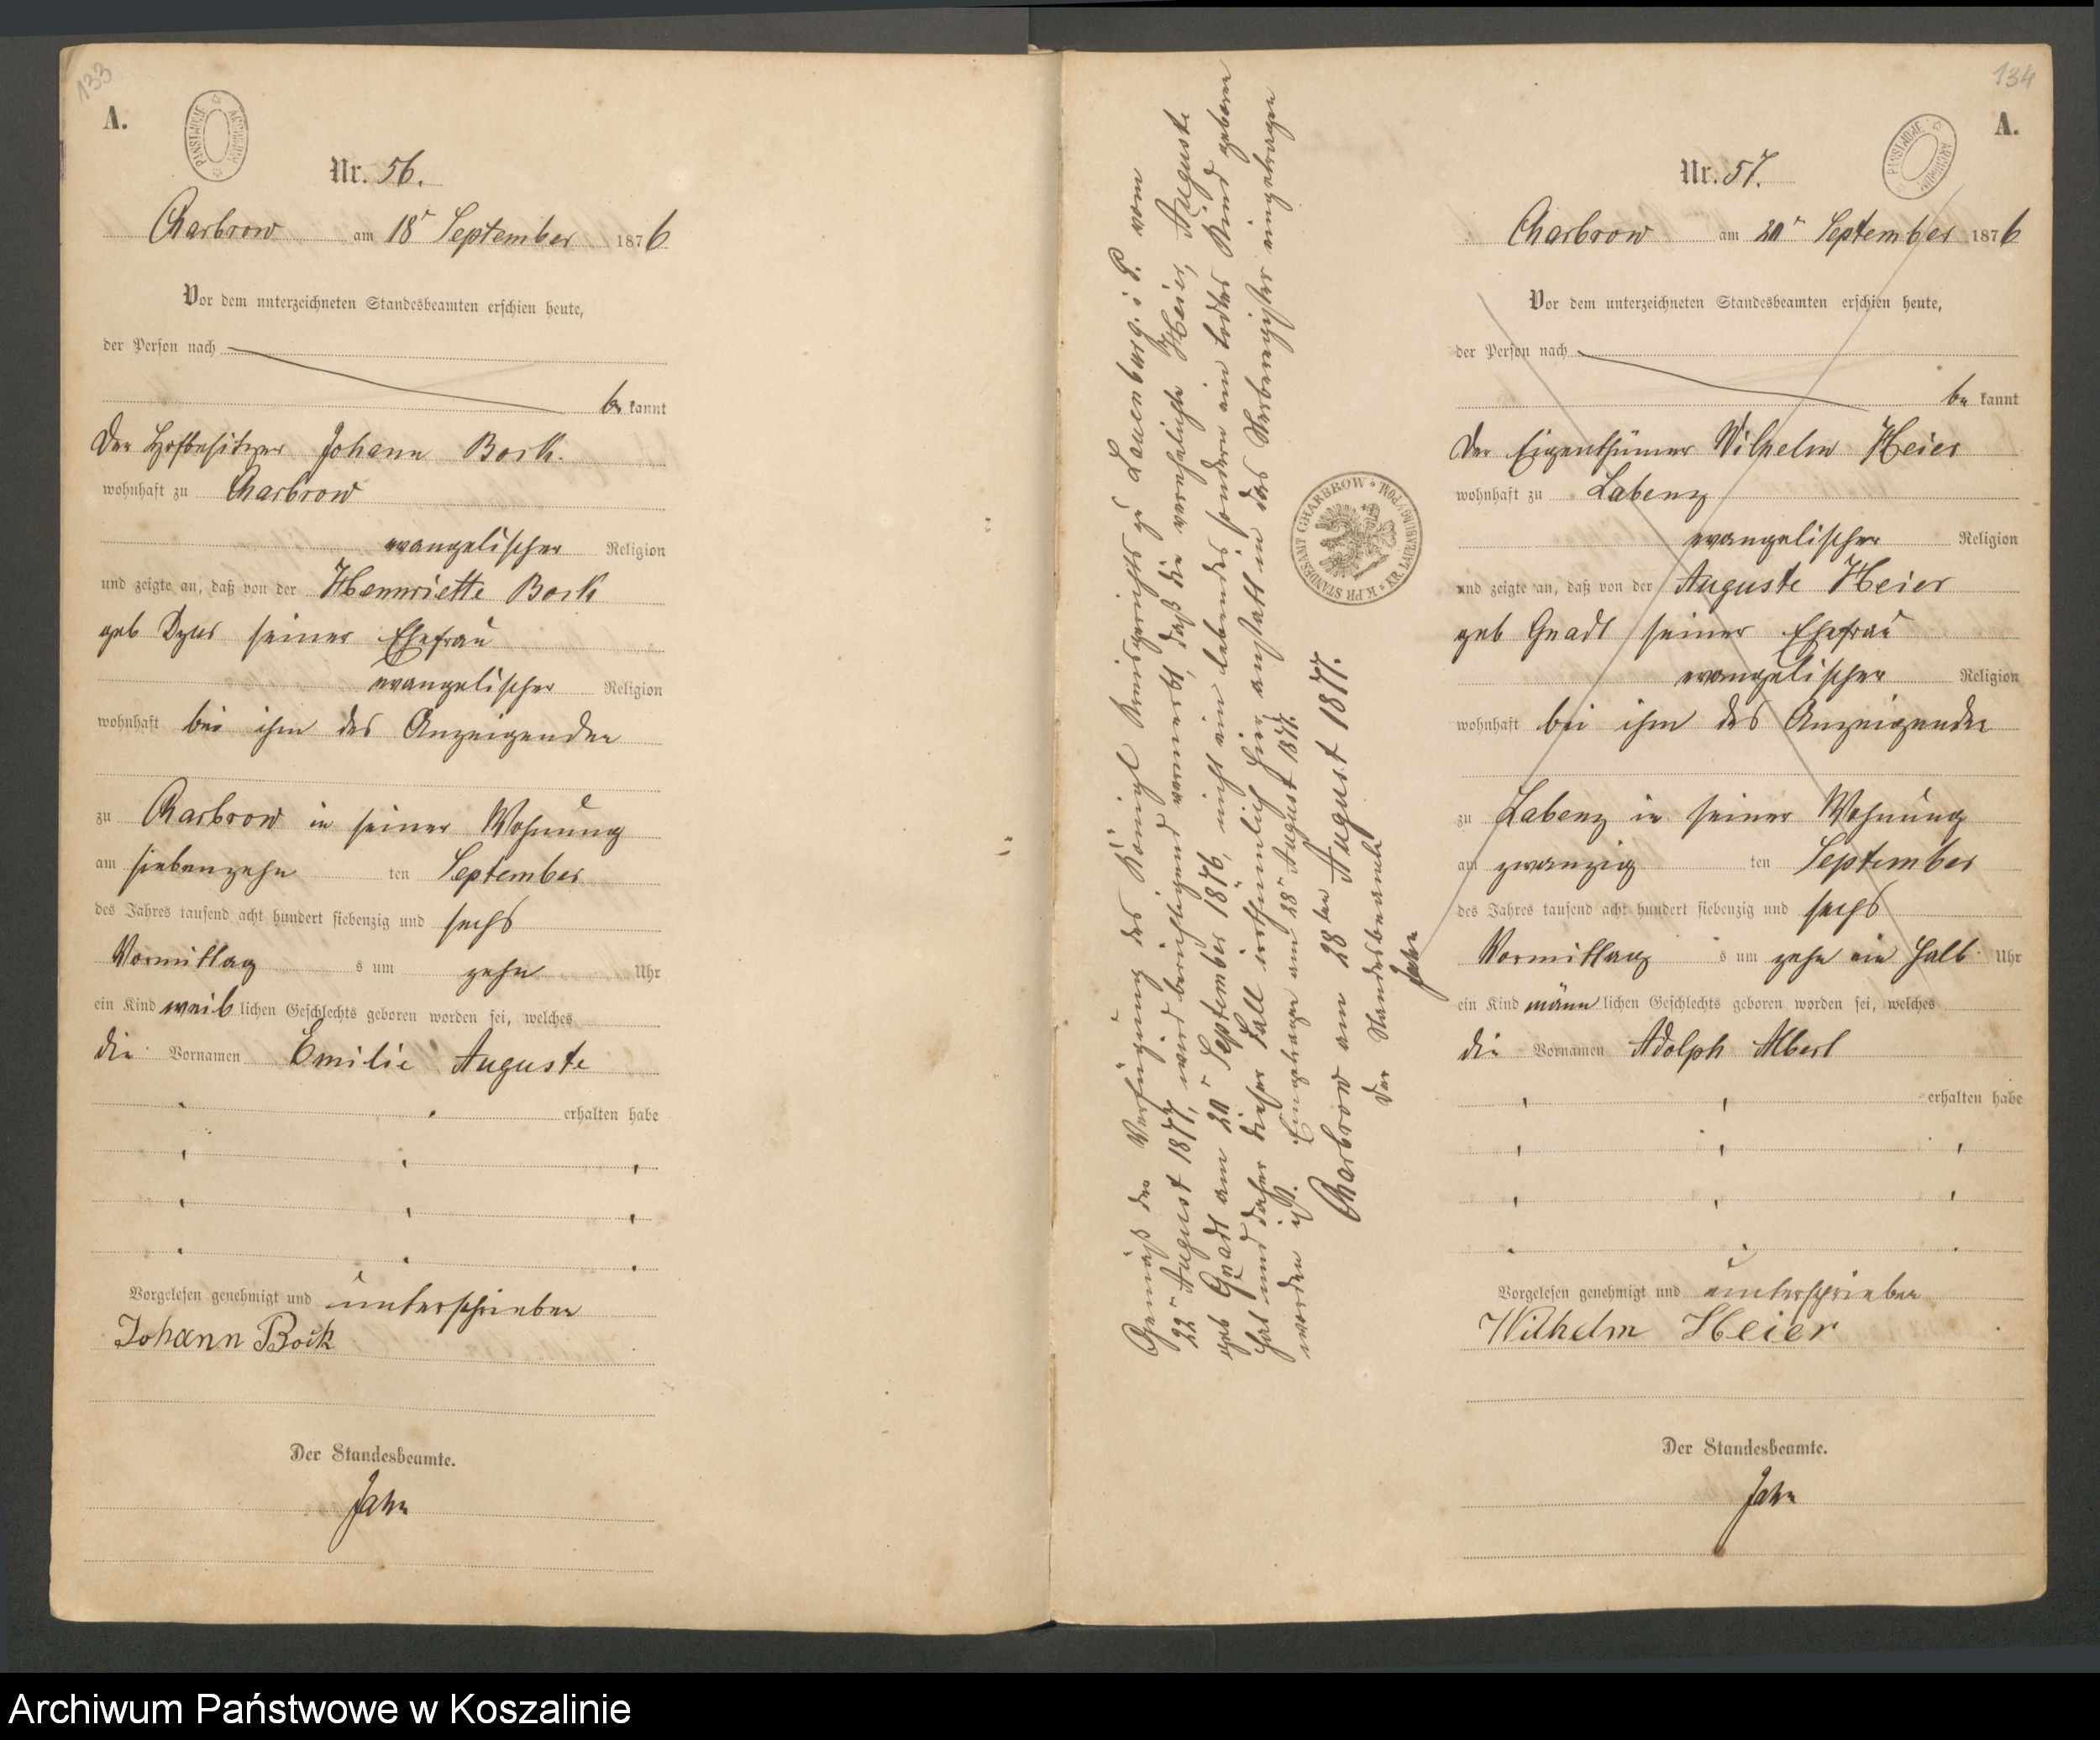 133
A.
ARCHIWUM PAŃSTWOWE
Nr. 56.
Charbrow am 18ʳ September 1876
Vor dem unterzeichneten Standesbeamten erschien heute,
der Person nach
be kannt
Der Hofbesitzer Johann Bork.
wohnhaft zu Charbrow
evangelischer Religion
und zeigte an, daß von der Hennriette Bork
geb seiner Ehefrau
evangelischer Religion
wohnhaft bei ihm des Anzeigenden
zu Charbrow in seiner Wohnung
am siebenzehn ten September
des Jahres tausend acht hundert siebenzig und sechs
Vormittag s um zehn Uhr
ein Kind weib lichen Geschlechts geboren worden sei, welches
die Vornamen Emilie Auguste
erhalten habe
Vorgelesen genehmigt und unterschrieben
Johann Bork
Der Standesbeamte.
Jahn
Gemäß der Verfügung des Königl Kreisgerichts zu Lauenburg i P. vom
22ʳ August 1877, wird berichtigend vermerkt, daß die verehelichte Heier, Auguste
geb Gnadt am 20ʳ September 1876, nicht ein lebendes sondern ein todtes Kind geboren
hat und daher dieser Fall irrthümlich hier anstatt in das Sterberegister eingetragen
worden ist. Eingetragen am 28ʳ August 1877.
Charbrow am 28ten August 1877.
Der Standesbeamte
Jahn
K. PR. STANDESAMT CHARBROW * KR. LAUENBURG I/POM. *
134
A.
ARCHIWUM PAŃSTWOWE
Nr. 57.
Charbrow am 20ʳ September 1876
Vor dem unterzeichneten Standesbeamten erschien heute,
der Person nach
be kannt
Der Eigenthümer Wilhelm Heier
wohnhaft zu Labenz
evangelischer Religion
und zeigte an, daß von der Auguste Heier
geb Gnadt seiner Ehefrau
evangelischer Religion
wohnhaft bei ihm des Anzeigenden
zu Labenz in seiner Wohnung
am zwanzig ten September
des Jahres tausend acht hundert siebenzig und sechs
Vormittag s um zehn ein halb Uhr
ein Kind männ lichen Geschlechts geboren worden sei, welches
die Vornamen Adolph Albert
erhalten habe
Vorgelesen genehmigt und unterschrieben
Wilhelm Heier
Der Standesbeamte.
Jahn
Archiwum Państwowe w Koszalinie